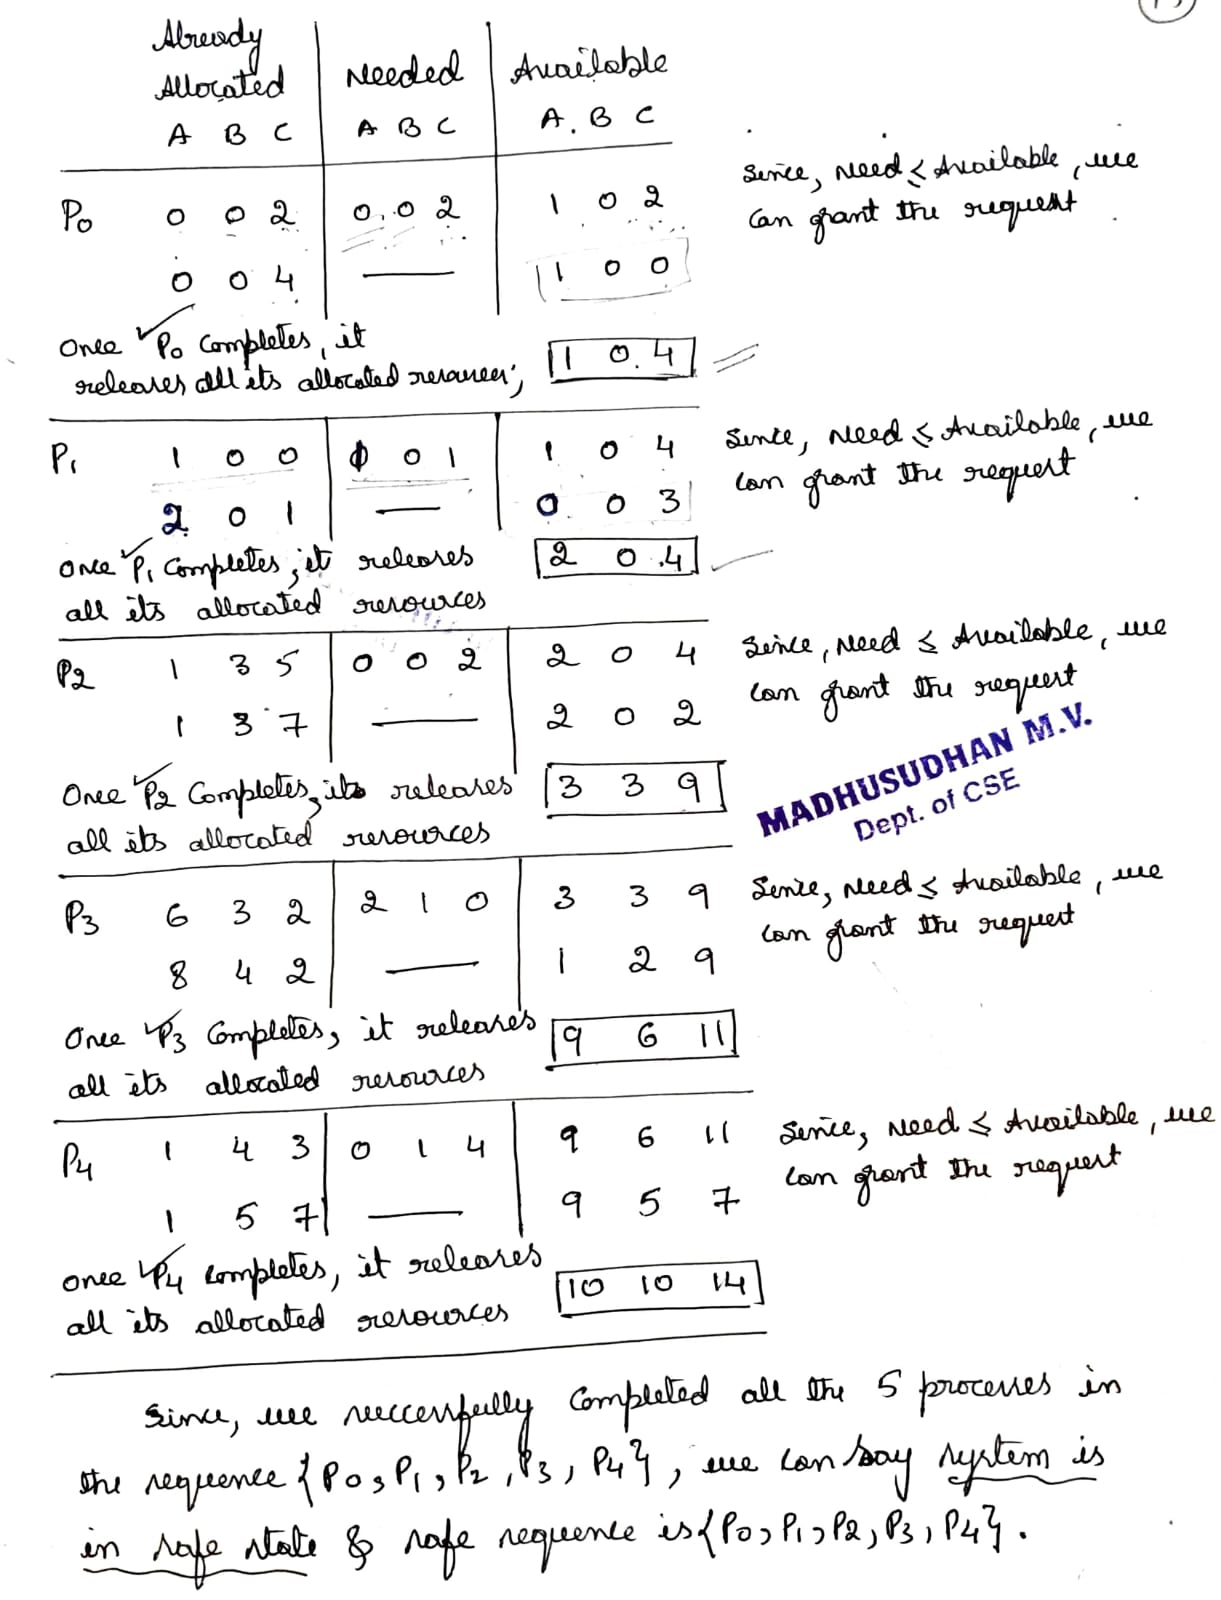 Already
Allocated Needed Available
A B C A B C A. B C
P0 0 0 2 0.0 2 1 0 2 Since, Need ≤ Available, we
can grant the request
0 0 4 — 1 0 0
Once P0 completes, it 1 0.4
releases all its allocated resources;
P1 1 0 0 1 0 1 1 0 4 Since, Need ≤ Available, we
can grant the request
2 0 1 — 0 0 3
Once P1 Completes, it releases 2 0.4
all its allocated resources
P2 1 3 5 0 0 2 2 0 4 Since, Need ≤ Available, we
can grant the request
1 3 7 — 2 0 2
MADHUSUDHAN M.V.
Dept. of CSE
Once P2 Completes, it releases 3 3 9
all its allocated resources
P3 6 3 2 2 1 0 3 3 9 Since, Need ≤ Available, we
can grant the request
8 4 2 — 1 2 9
Once P3 Completes, it releases 9 6 11
all its allocated resources
P4 1 4 3 0 1 4 9 6 11 Since, Need ≤ Available, we
can grant the request
1 5 7 — 9 5 7
Once P4 completes, it releases
all its allocated resources 10 10 14
Since, we successfully completed all the 5 processes in
the sequence {P0, P1, P2, P3, P4}, we can say system is
in safe state & safe sequence is {P0, P1, P2, P3, P4}.